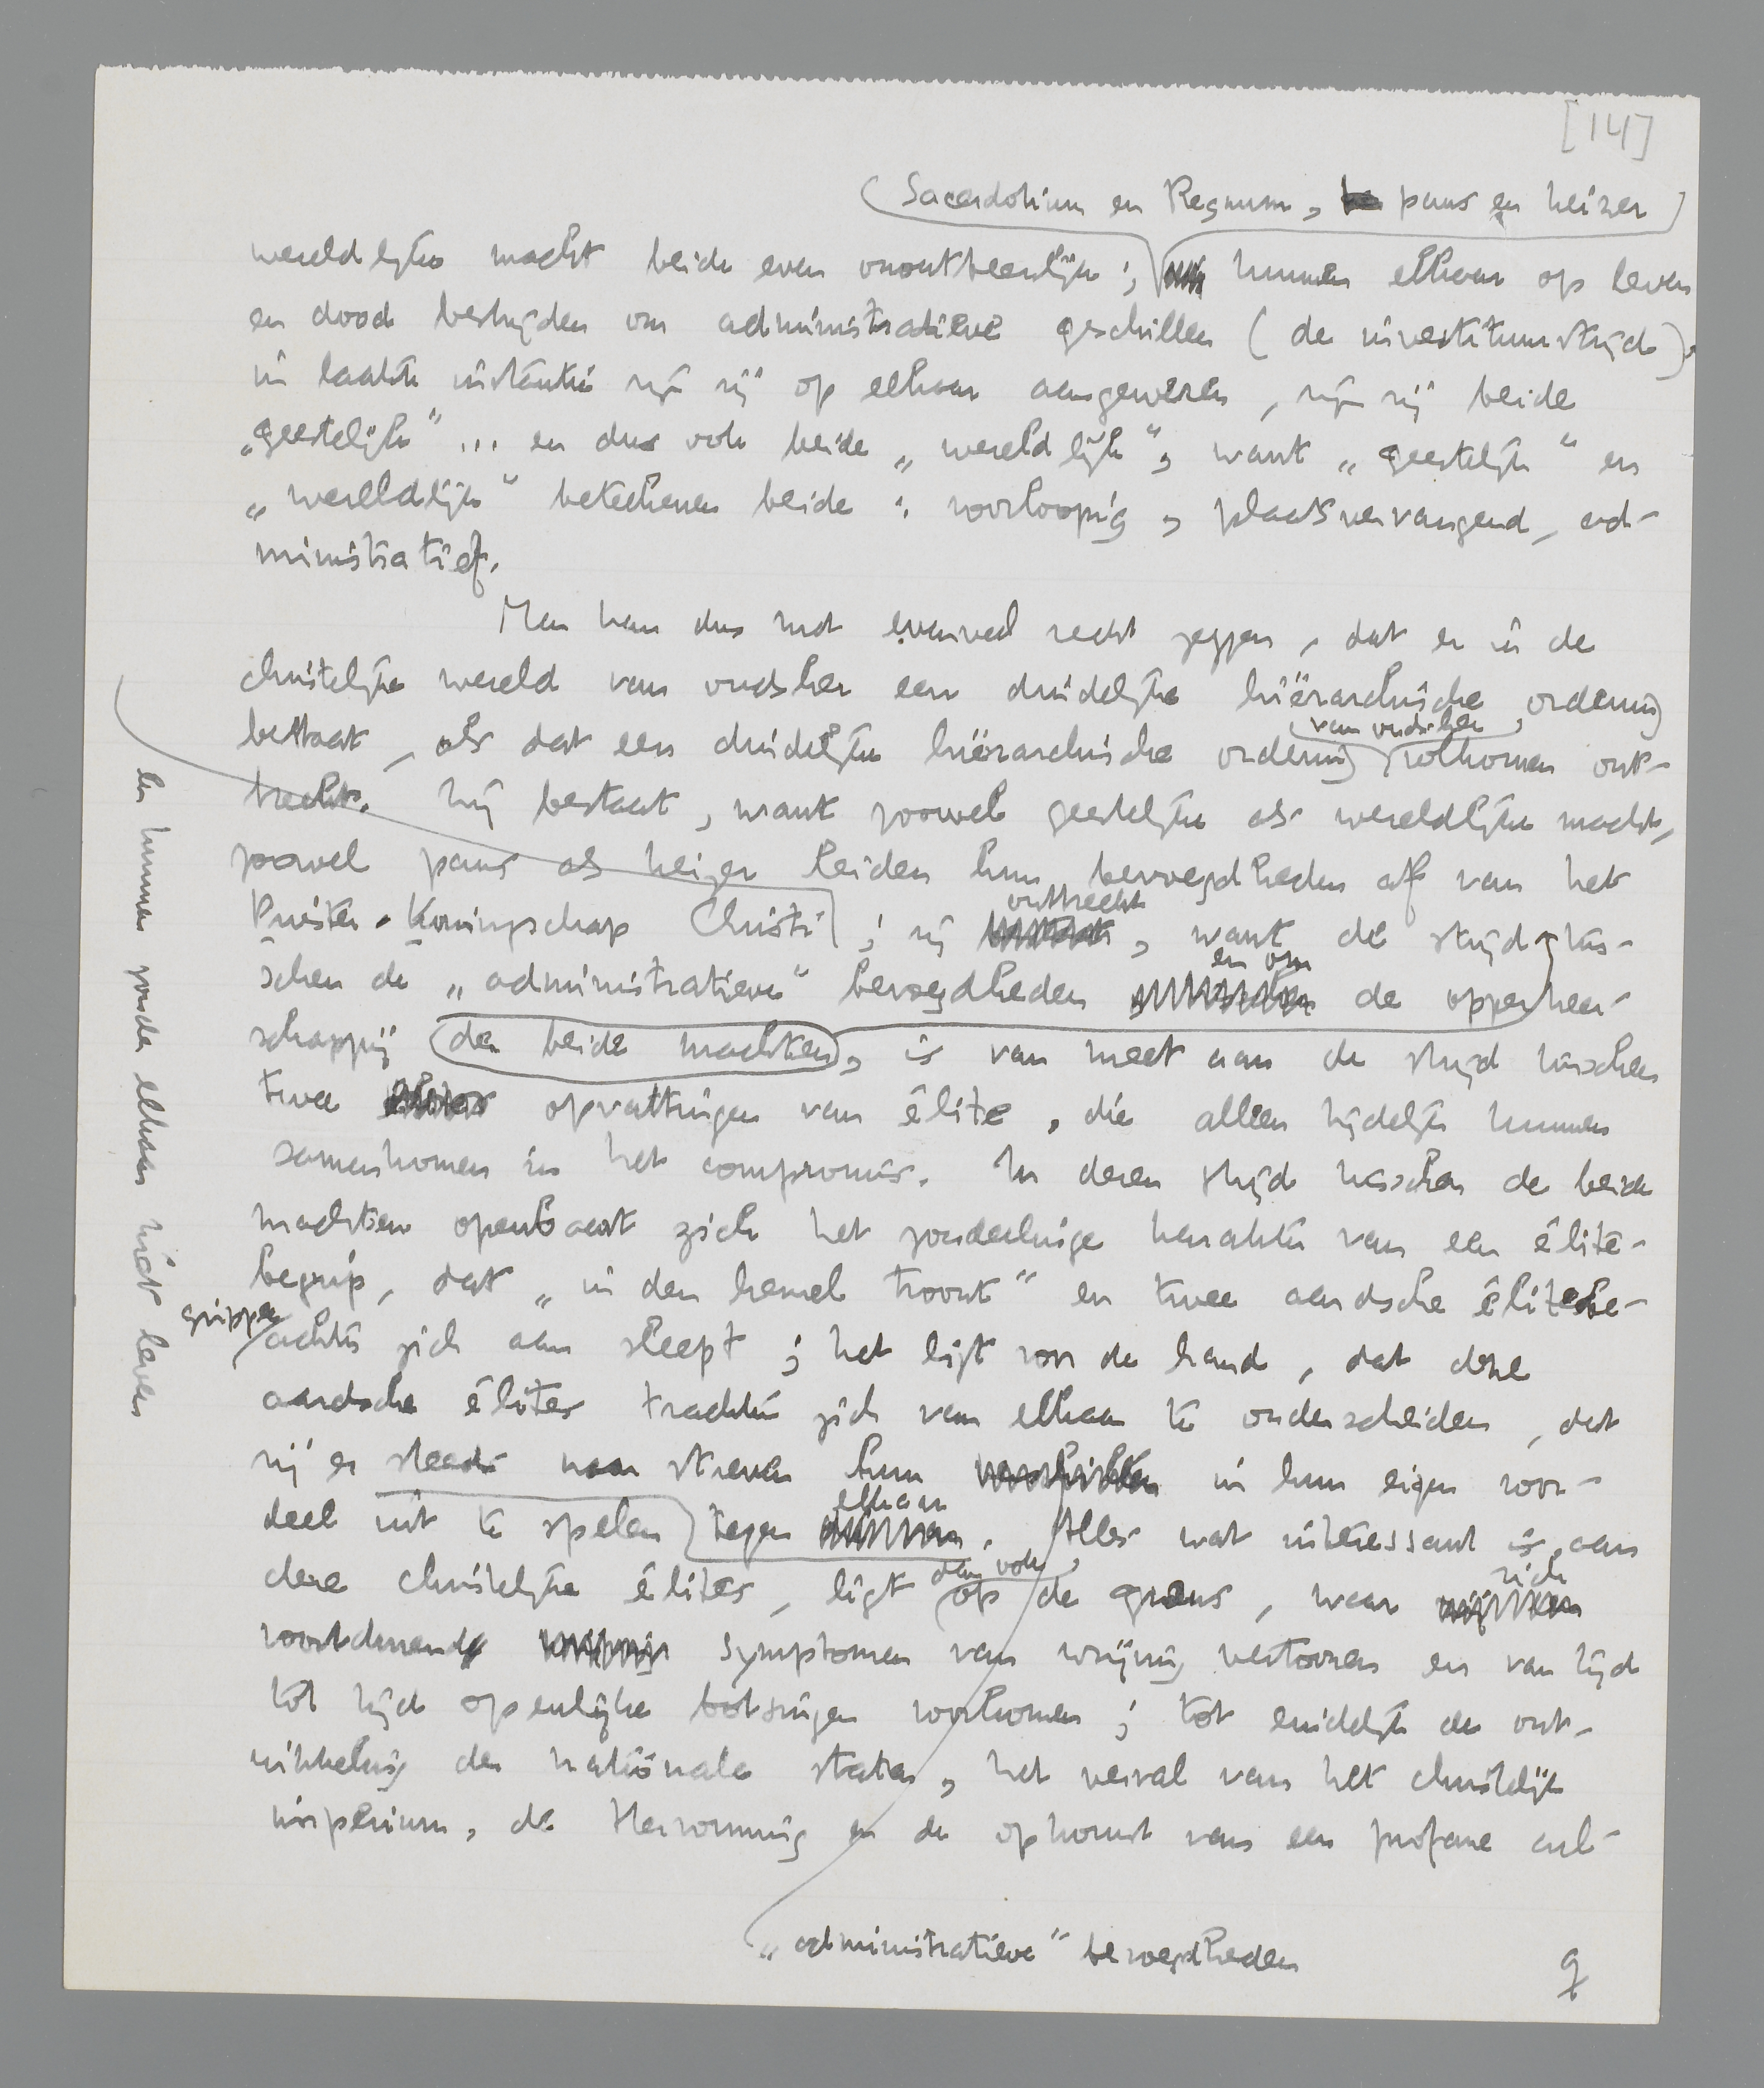 [14]
(Sacerdotium en Regnum, paus en keizer
wereldlijke macht beide even onontbeerlijk; kunnen elkaar op leven
en dood bestrijden om administratieve geschillen (de investituurstrijd).
in laatste instantie zijn zij op elkaar aangewezen, zijn zij beide
„geestelijk” ... en dus ook beide „wereldlijk”, want „geestelijk” en
„wereldlijk” beteekenen beide: voorloopig, plaatsvervangend, ad-
ministratief.
Men kan dus met evenveel recht zeggen, dat er in de
christelijke wereld van oudsher een duidelijke hiërarchische ordening
bestaat, als dat een duidelijke hiërarchische ordening
van oudsher
volkomen ont-
breekt. Zij bestaat, want zoowel geestelijke als wereldlijke macht,
zoowel paus als keizer leiden hun bevoegdheden af van het
Priester-Koningschap Christi; zij
ontbreekt
, want de strijd tus-
schen de „administratieve” bevoegdheden
en om
de opperheer-
schappij der beide machten, is van meet aan de strijd tusschen
twee opvattingen van élite, die alleen tijdelijk kunnen
samenkomen in het compromis. In dezen strijd tusschen de beide
machten openbaart zich het zonderlinge karakter van een élite-
begrip, dat „in den hemel troont” en twee aardsche élite
groepen
achter zich aan sleept; het ligt voor de hand, dat deze
aardsche élites trachten zich van elkaar te onderscheiden, dat
zij er steeds naar streven hun in hun eigen voor-
deel uit te spelen tegen
elkaar
. Alles wat interessant is aan
deze christelijke élites, ligt
dan ook
op de grens, waar
zich
voortdurend symptomen van wrijving vertoonen en van tijd
tot tijd openlijke botsingen voorkomen; tot eindelijk de ont-
wikkeling der nationale staten, het verval van het christelijk
imperium, de Hervorming en de opkomst van een profane cul-
„administratieve” bevoegdheden
9
en kunnen zonder elkaar niet leven